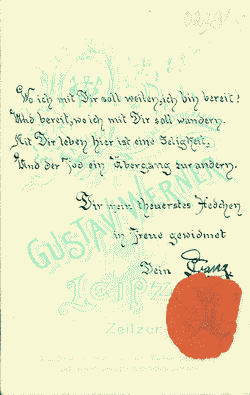 Wo ich mit Dir soll weilen, ich bin bereit!
Und bereit, wo ich mit Dir soll wandern.
Mit Dir leben hier ist eine Seligkeit,
Und der Tod ein Übergang zur andern.
Dir mein theuerstes Hedchen
in Treue gewidmet
Dein Franz
GUSTAV WERNER
Leipzig
Zeitzer